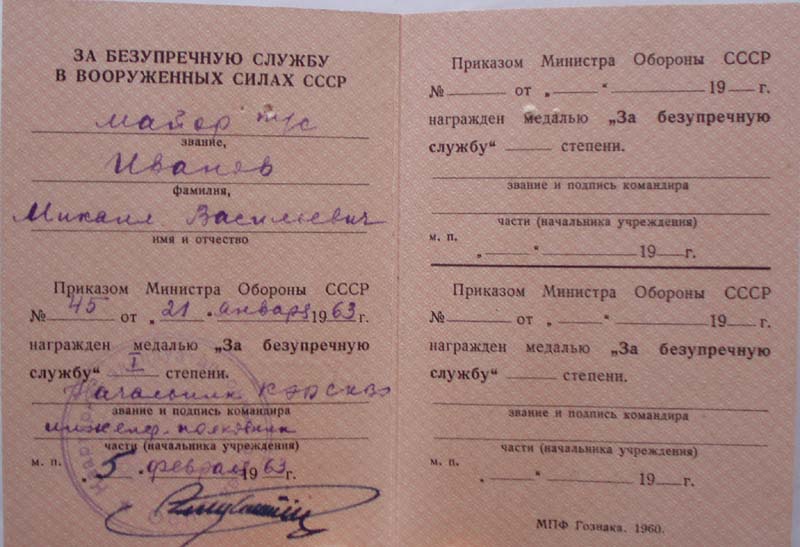 ЗА БЕЗУПРЕЧНУЮ СЛУЖБУ
В ВООРУЖЕННЫХ СИЛАХ СССР
майор
звание,
Иванов
фамилия,
Михаил Васильевич
имя и отчество
Приказом Министра Обороны СССР
№ 45 от „21“ января 1963 г.
награжден медалью „За безупречную
службу“ I степени.
Начальник КЭО СКВО
звание и подпись командира
инженер-полковник
части (начальника учреждения)
м. п. „5“ февраля 1963 г.
Приказом Министра Обороны СССР
№ от „ “ 19 г.
награжден медалью „За безупречную
службу“ степени.
звание и подпись командира
части (начальника учреждения)
м. п. „ “ 19 г.
Приказом Министра Обороны СССР
№ от „ “ 19 г.
награжден медалью „За безупречную
службу“ степени.
звание и подпись командира
части (начальника учреждения)
м. п. „ “ 19 г.
МПФ Гознака. 1960.